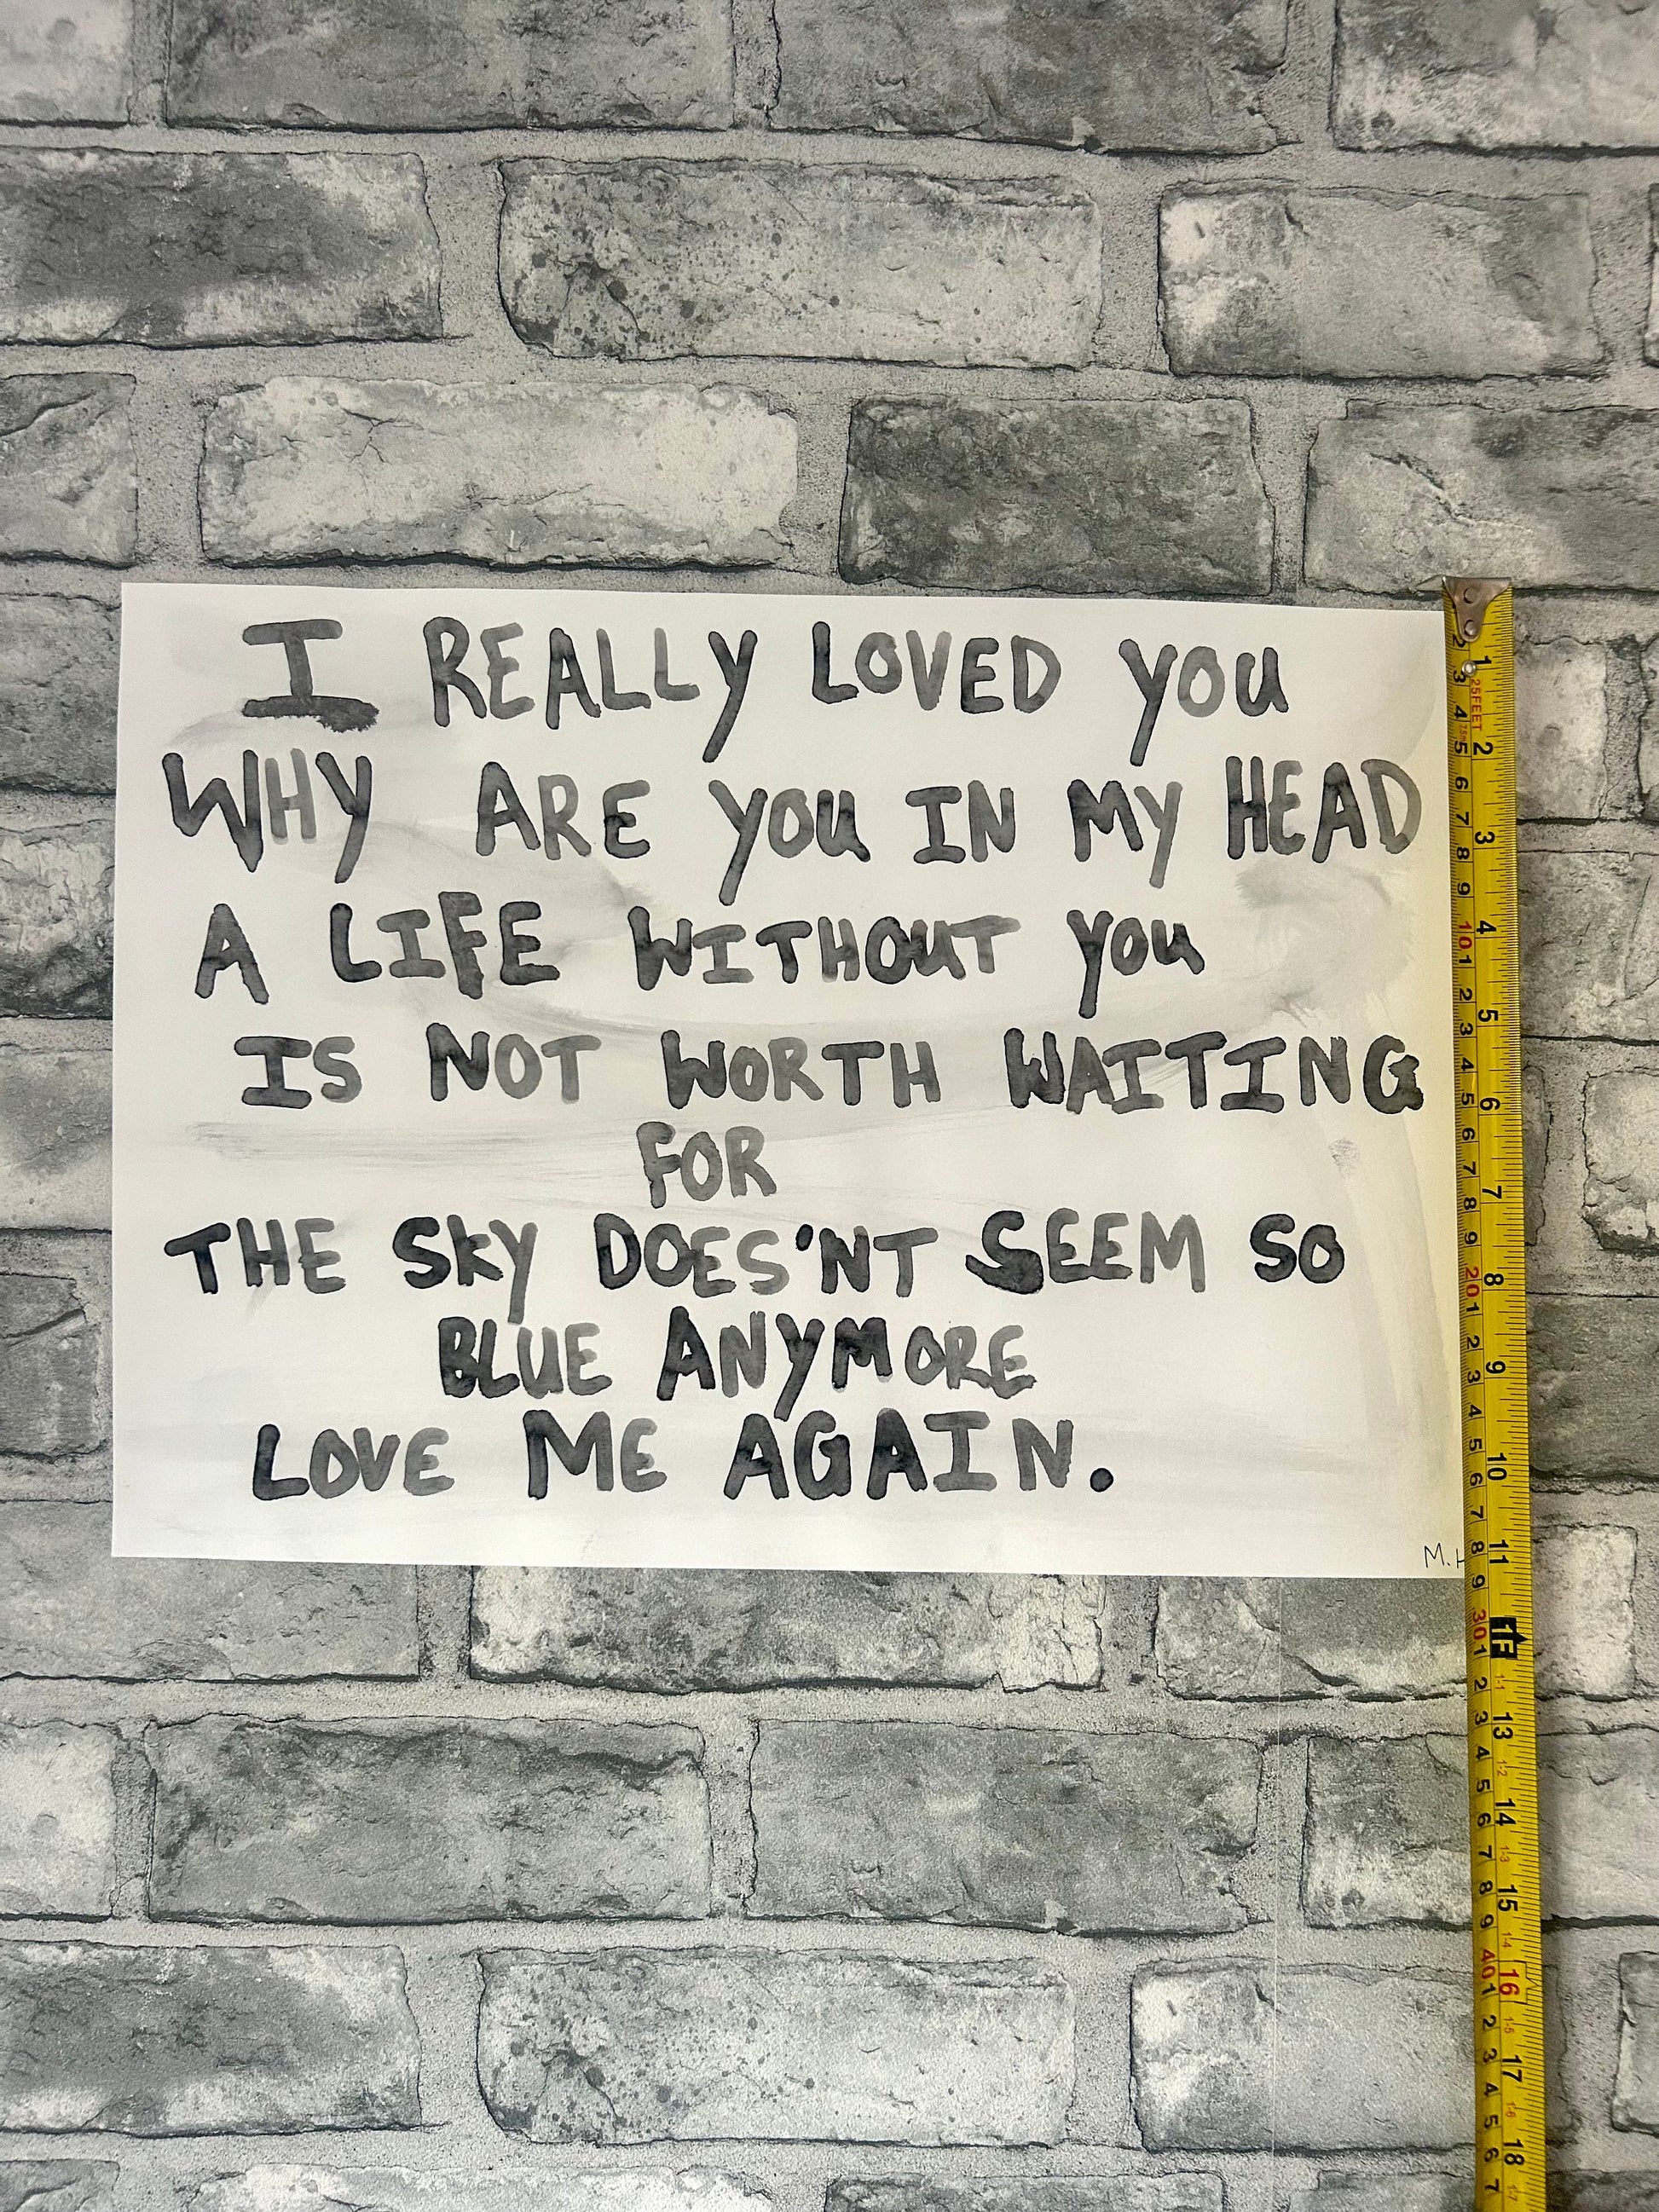 I REALLY LOVED YOU
WHY ARE YOU IN MY HEAD
A LIFE WITHOUT YOU
IS NOT WORTH WAITING
FOR
THE SKY DOES'NT SEEM SO
BLUE ANYMORE
LOVE ME AGAIN.
M.H
25FEET
1
2
3
4
5
6
7
8
9
10
11
1F
13
14
15
16
17
18